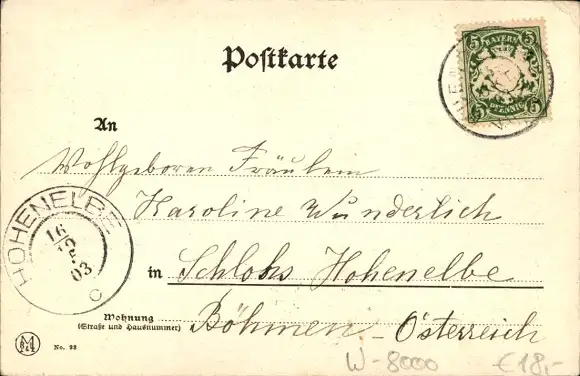 Postkarte
5 BAYERN 5
5 PFENNIG 5
An
Wohlgeboren Fräulein
Karoline Wunderlich
HOHENELBE
16
12
03
C
in Schloss Hohenelbe
Wohnung
(Straße und Hausnummer)
Böhmen - Österreich
No. 98
W-8000
€ 18,-